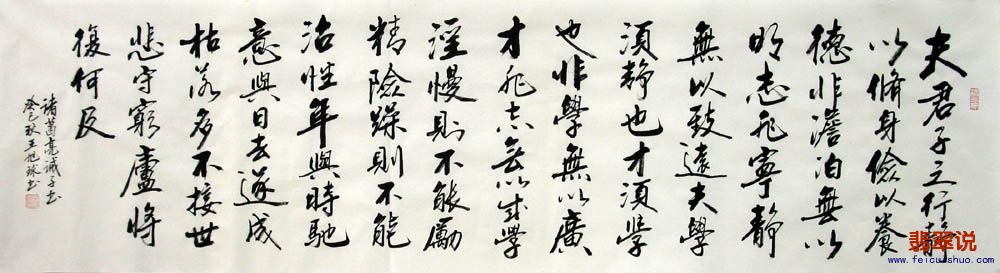 夫君子之行靜
以脩身儉以養
德非澹泊無以
明志非寧靜
無以致遠夫學
須靜也才須學
也非學無以廣
才非志無以成學
淫慢則不能勵
精險躁則不能
治性年與時馳
意與日去遂成
枯落多不接世
悲守窮廬將
復何及
諸葛亮誡子書
癸巳秋王旭球书
翡翠说
www.feicuishuo.com